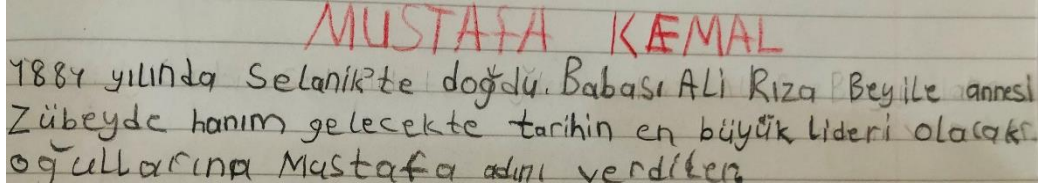 MUSTAFA KEMAL
1881 yılında Selanik'te doğdu. Babası Ali Rıza Bey ile annesi
Zübeyde hanım gelecekte tarihin en büyük lideri olacak
oğullarına Mustafa adını verdiler.